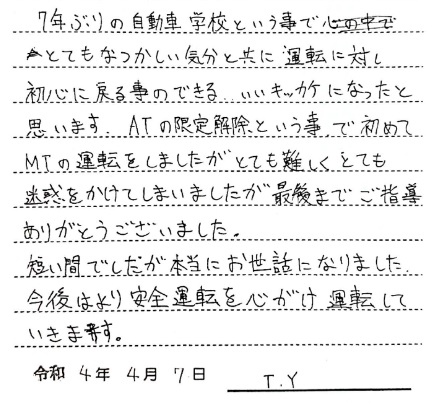 7年ぶりの自動車学校という事で
とてもなつかしい気分と共に運転に対し
初心に戻る事のできる、いいキッカケになったと
思います。ATの限定解除という事、で初めて
MTの運転をしましたがとても難しくとても
迷惑をかけてしまいましたが最後までご指導
ありがとうございました。
短い間でしだが本当にお世話になりました
今後はより安全運転を心がけ運転して
いきます。
令和 4年 4月 7日 T.Y